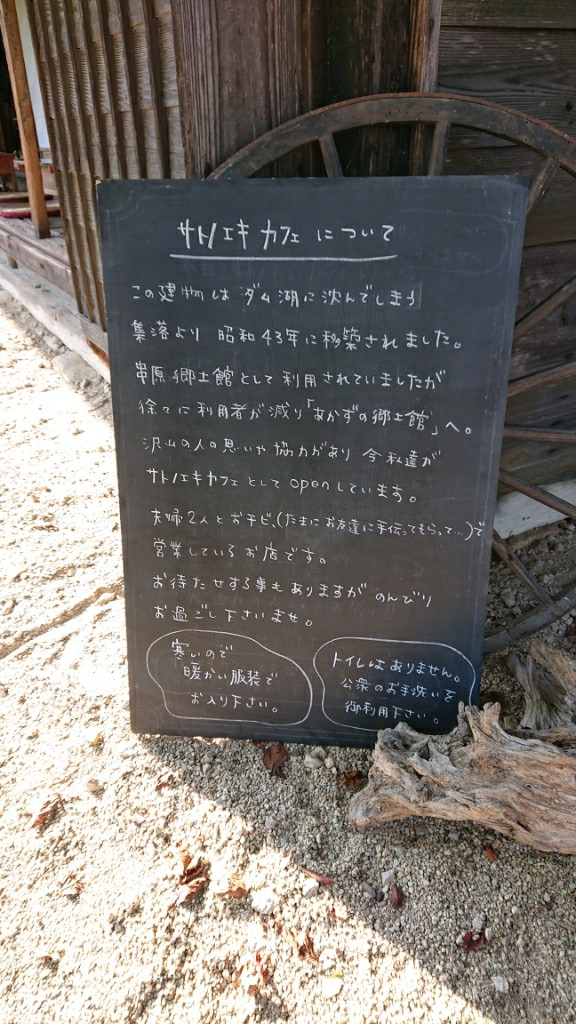 サトノエキカフェについて
この建物はダム湖に沈んでしまう
集落より 昭和43年に移築されました。
串原郷土館として利用されていましたが
徐々に利用者が減り「あかずの郷土館」へ。
沢山の人の思いや協力があり 今私達が
サトノエキカフェとしてopenしています。
夫婦2人とおチビ、(たまにお友達に手伝ってもらって…)で
営業しているお店です。
お待たせする事もありますが のんびり
お過ごし下さいませ。
寒いので
暖かい服装で
お入り下さい。
トイレはありません。
公衆のお手洗いを
御利用下さい。